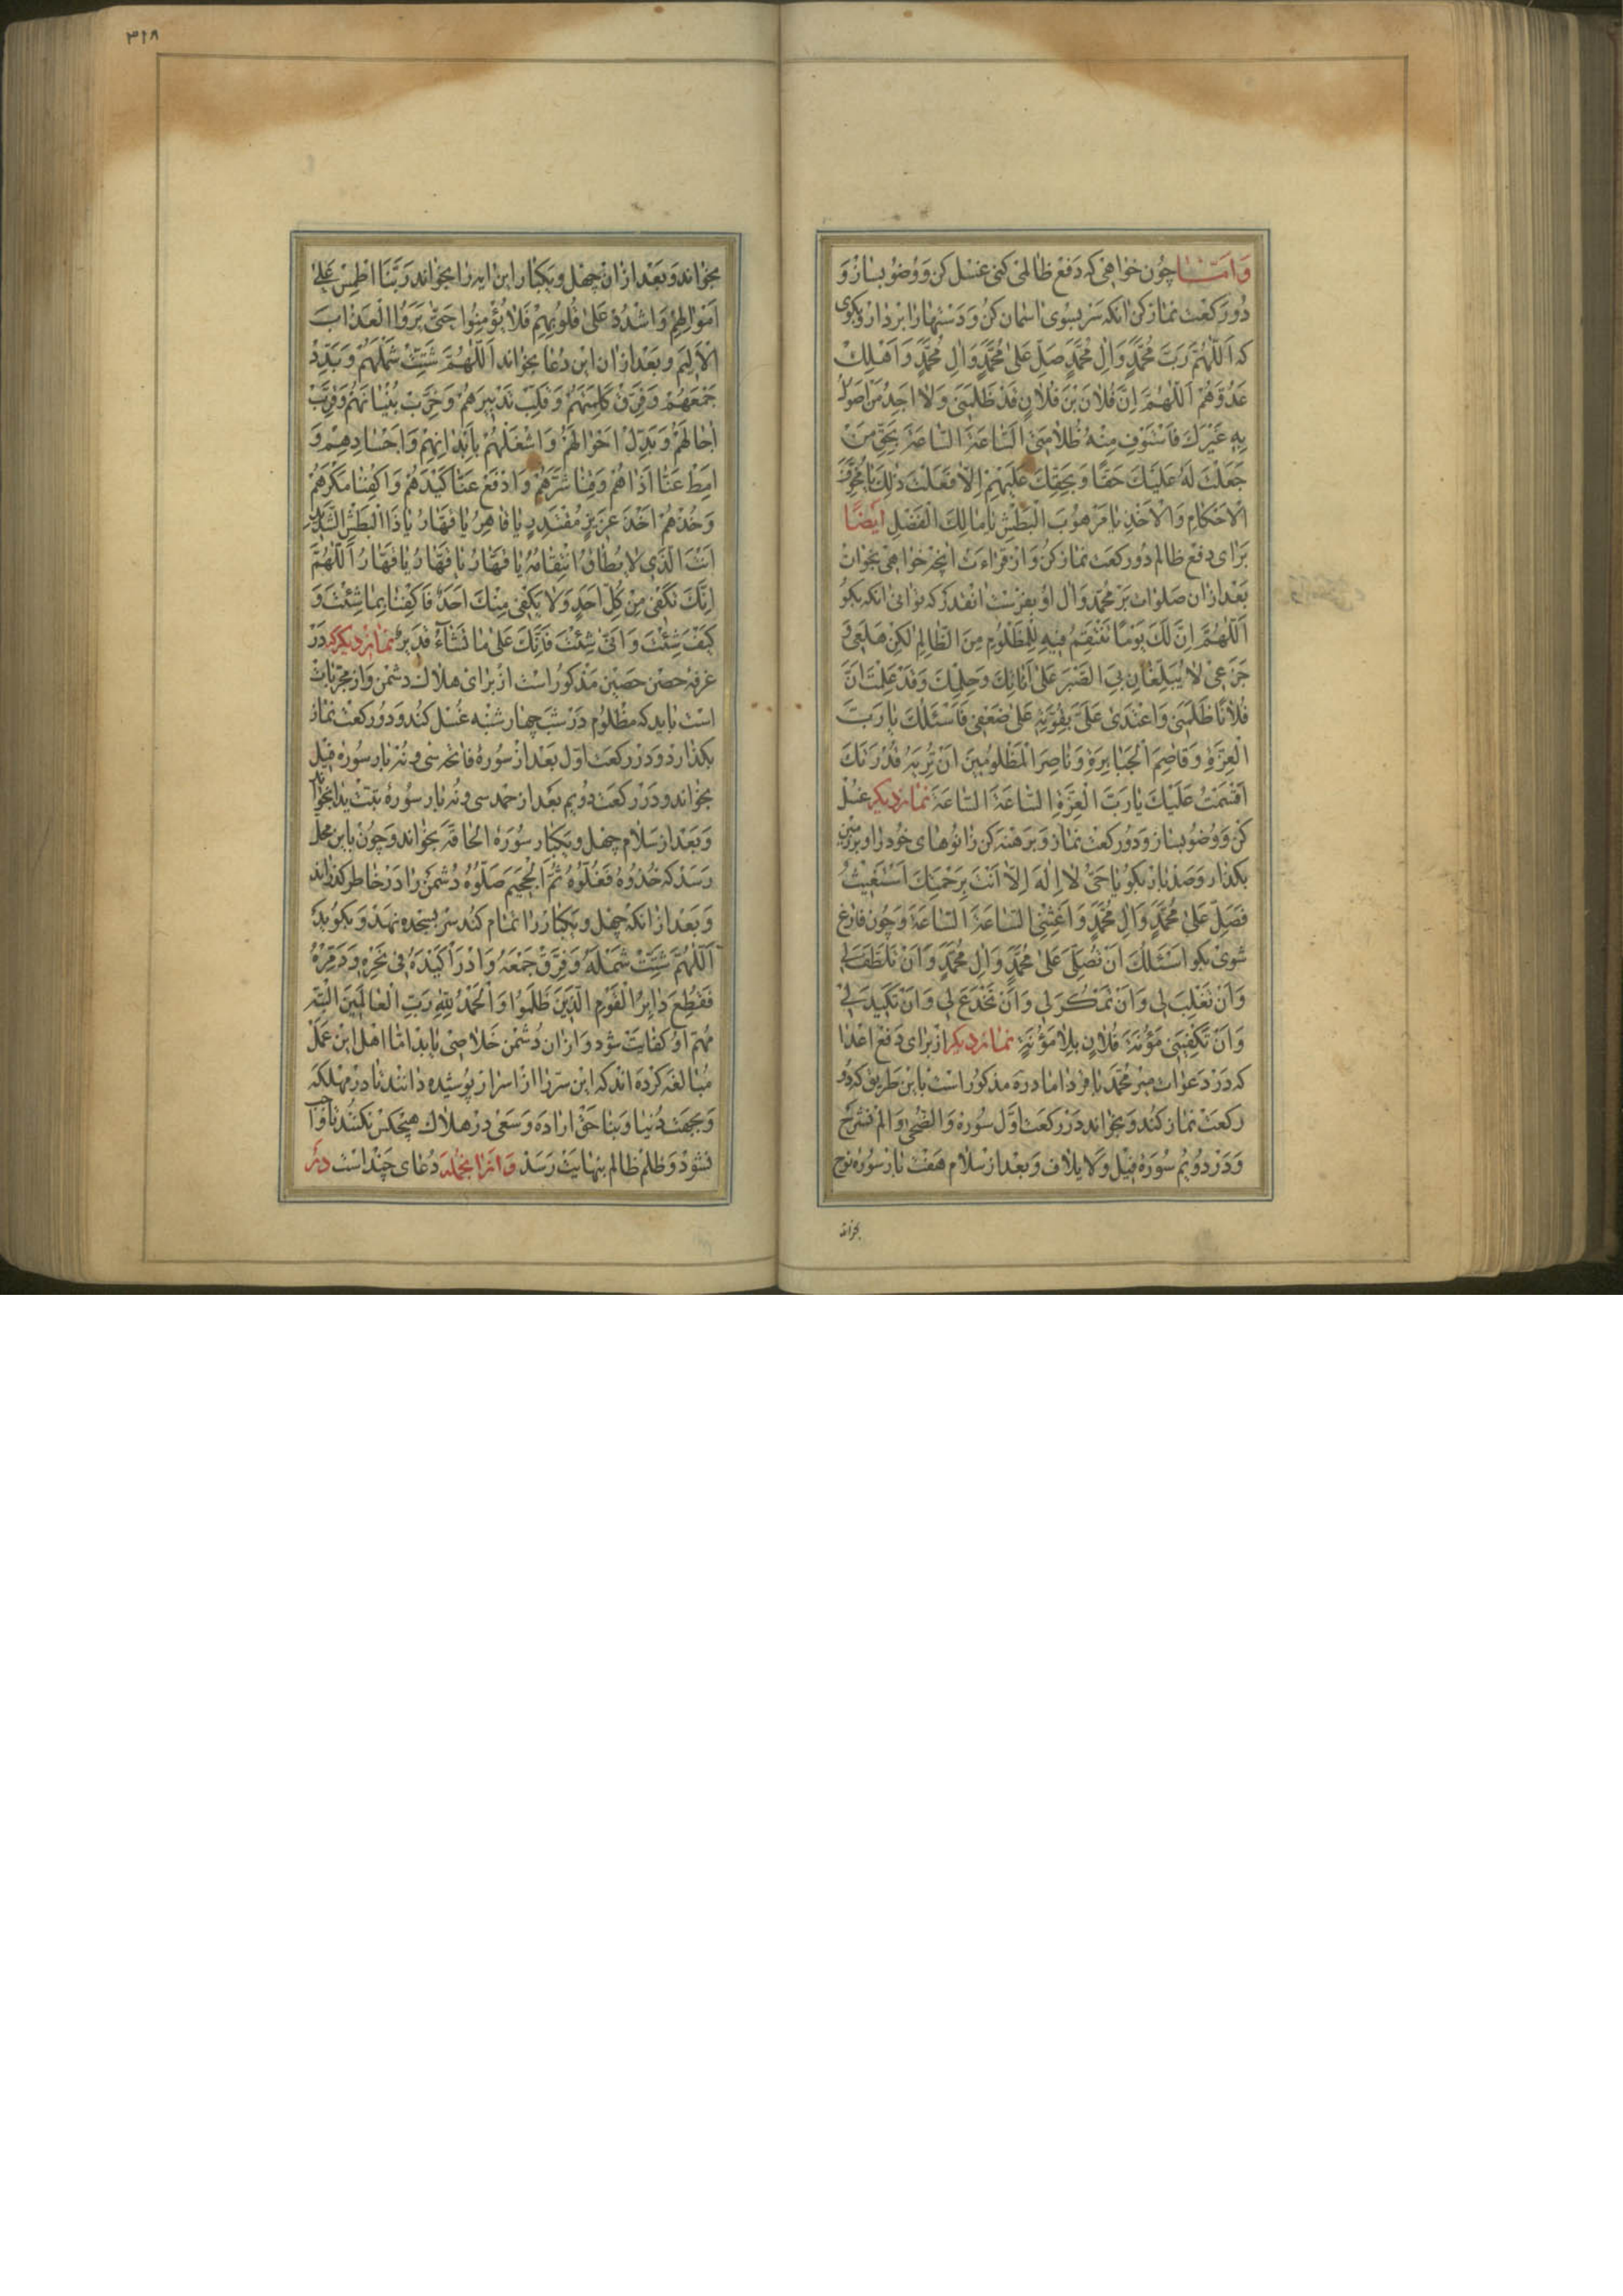 وَامّا چون خواهی که دفع ظالمی کنی غسل کن و وضو بساز و
دو رکعت نماز کن آنکه سر بسوی آسمان کن و دستها را بردار و بکوی
که اَللّهُمَّ رَبَّ مُحَمَّدٍ وَالِ مُحَمَّدٍ صَلِّ عَلی مُحَمَّدٍ وَالِ مُحَمَّدٍ وَاَهْلِكْ
عَدُوَّهُمْ اَللّهُمَّ اِنَّ فُلانَ بْنَ فُلانٍ قَدْ ظَلَمَنی وَلا اَجِدُ مَنْ اَصُولُ
بِهِ غَیْرَكَ فَاسْتَوْفِ مِنْهُ ظُلامَتی اَلسّاعَةَ السّاعَةَ بِحَقِّ مَنْ
جَعَلْتَ لَهُ عَلَیْكَ حَقًّا وَبِحَقِّكَ عَلَیْهِمْ اِلّا فَعَلْتَ ذلِكَ یا مُخَوِّفَ
الْاَحْکامِ وَالْاَخْذِ یا مَرْهُوبَ الْبَطْشِ یا مالِكَ الْفَضْلِ ایضًا
برای دفع ظالم دو رکعت نماز کن و از قراءت آنچه خواهی بخوان
بعد از ان صلوات بر محمد و ال او بفرست انقدر که توانی آنکه بکو
اَللّهُمَّ اِنَّ لَكَ یَوْمًا تَنْتَقِمُ فیهِ لِلْمَظْلُومِ مِنَ الظّالِمِ لکِنْ هَلَعی وَ
جَزَعی لا یُبَلِّغانِ بِیَ الصَّبْرَ عَلی اَناتِكَ وَحِلْمِكَ وَقَدْ عَلِمْتَ اَنَّ
فُلانًا ظَلَمَنی وَاعْتَدی عَلَیَّ بِقُوَّتِهِ عَلی ضَعْفی فَاَسْئَلُكَ یا رَبَّ
الْعِزَّةِ وَقاصِمَ الْجَبابِرَةِ وَناصِرَ الْمَظْلُومینَ اَنْ تُرِیَهُ قُدْرَتَكَ
اَقْسَمْتُ عَلَیْكَ یا رَبَّ الْعِزَّةِ السّاعَةَ السّاعَةَ نماز دیکر غسل
کن و وضو بساز و دو رکعت نماز و برهنه کن زانوهای خود را و بر زمین
بکذار و صد بار بکو یا حَیُّ لا اِلهَ اِلّا اَنْتَ بِرَحْمَتِكَ اَسْتَغیثُ
فَصَلِّ عَلی مُحَمَّدٍ وَالِ مُحَمَّدٍ وَاَغِثْنِی السّاعَةَ السّاعَةَ و چون فارغ
شوی بکو اَسْئَلُكَ اَنْ تُصَلِّیَ عَلی مُحَمَّدٍ وَالِ مُحَمَّدٍ وَاَنْ تَلْطُفَ لی
وَاَنْ تَغْلِبَ لی وَاَنْ تَمْکُرَ لی وَاَنْ تَخْدَعَ لی وَاَنْ تَکیدَ لی
وَاَنْ تَکْفِیَنی مَؤُنَةَ فُلانٍ بِلا مَؤُنَةٍ نماز دیکر از برای دفع اعدا
که در دعوات میر محمد باقر داماد ره مذکور است باین طریق که دو
رکعت نماز کند و بخواند در رکعت اول سوره والضحی و الم نشرح
و در دویم سوره فیل و لایلاف و بعد از سلام هفت بار سوره نوح
بخواند
۳۱۸
بخواند و بعد از ان چهل و یکبار این ایه را بخواند رَبَّنَا اطْمِسْ عَلی
اَمْوالِهِمْ وَاشْدُدْ عَلی قُلُوبِهِمْ فَلا یُؤْمِنُوا حَتّی یَرَوُا الْعَذابَ
الْاَلیمَ و بعد از ان این دعا بخواند اَللّهُمَّ شَتِّتْ شَمْلَهُمْ وَبَدِّدْ
جَمْعَهُمْ وَفَرِّقْ کَلِمَتَهُمْ وَقَلِّبْ تَدْبیرَهُمْ وَخَرِّبْ بُنْیانَهُمْ وَقَرِّبْ
اجالَهُمْ وَبَدِّلْ اَحْوالَهُمْ وَاشْغَلْهُمْ بِاَبْدانِهِمْ وَاَجْسادِهِمْ وَ
اَمِطْ عَنّا اَذاهُمْ وَقِنا شَرَّهُمْ وَادْفَعْ عَنّا کَیْدَهُمْ وَاکْفِنا مَکْرَهُمْ
وَخُذْهُمْ اَخْذَ عَزیزٍ مُقْتَدِرٍ یا قاهِرُ یا قَهّارُ یا ذَا الْبَطْشِ الشَّدیدِ
اَنْتَ الَّذی لا یُطاقُ انْتِقامُهُ یا قَهّارُ یا قَهّارُ یا قَهّارُ اَللّهُمَّ
اِنَّكَ تَکْفی مِنْ کُلِّ اَحَدٍ وَلا یَکْفی مِنْكَ اَحَدٌ فَاکْفِنا بِما شِئْتَ وَ
کَیْفَ شِئْتَ وَاَنّی شِئْتَ فَاِنَّكَ عَلی ما تَشاءُ قَدیرٌ نماز دیکر که در
غرفه حصن حصین مذکور است از برای هلاك دشمن و از مجرّبات
است باید که مظلوم در شب چهارشنبه غسل کند و دو رکعت نماز
بکذارد و در رکعت اول بعد از سوره فاتحه سی و نه بار سوره فیل
بخواند و در رکعت دویم بعد از حمد سی و نه بار سوره تبّت یدا بخواند
و بعد از سلام چهل و یکبار سوره الحاقه بخواند و چون باین محل
رسد که خُذُوهُ فَغُلُّوهُ ثُمَّ الْجَحیمَ صَلُّوهُ دشمن را در خاطر کذراند
و بعد از آنکه چهل و یکبار را تمام کند سر بسجده نهد و بکوید
اَللّهُمَّ شَتِّتْ شَمْلَهُ وَفَرِّقْ جَمْعَهُ وَادْرَأْ کَیْدَهُ فی نَحْرِهِ وَدَمِّرْهُ
فَقُطِعَ دابِرُ الْقَوْمِ الَّذینَ ظَلَمُوا وَالْحَمْدُ لِلّهِ رَبِّ الْعالَمینَ البته
مهم او کفایت شود و از ان دشمن خلاصی یابد اما اهل این عمل
مبالغه کرده اند که این سرّ را از اسرار پوشیده دانند تا در مهلکه
و بجهت دنیا و بناحق اراده و سعی در هلاك هیچکس نکنند تا واجب
نشود و ظلم ظالم بنهایت رسد و از انجمله دعای چند است در